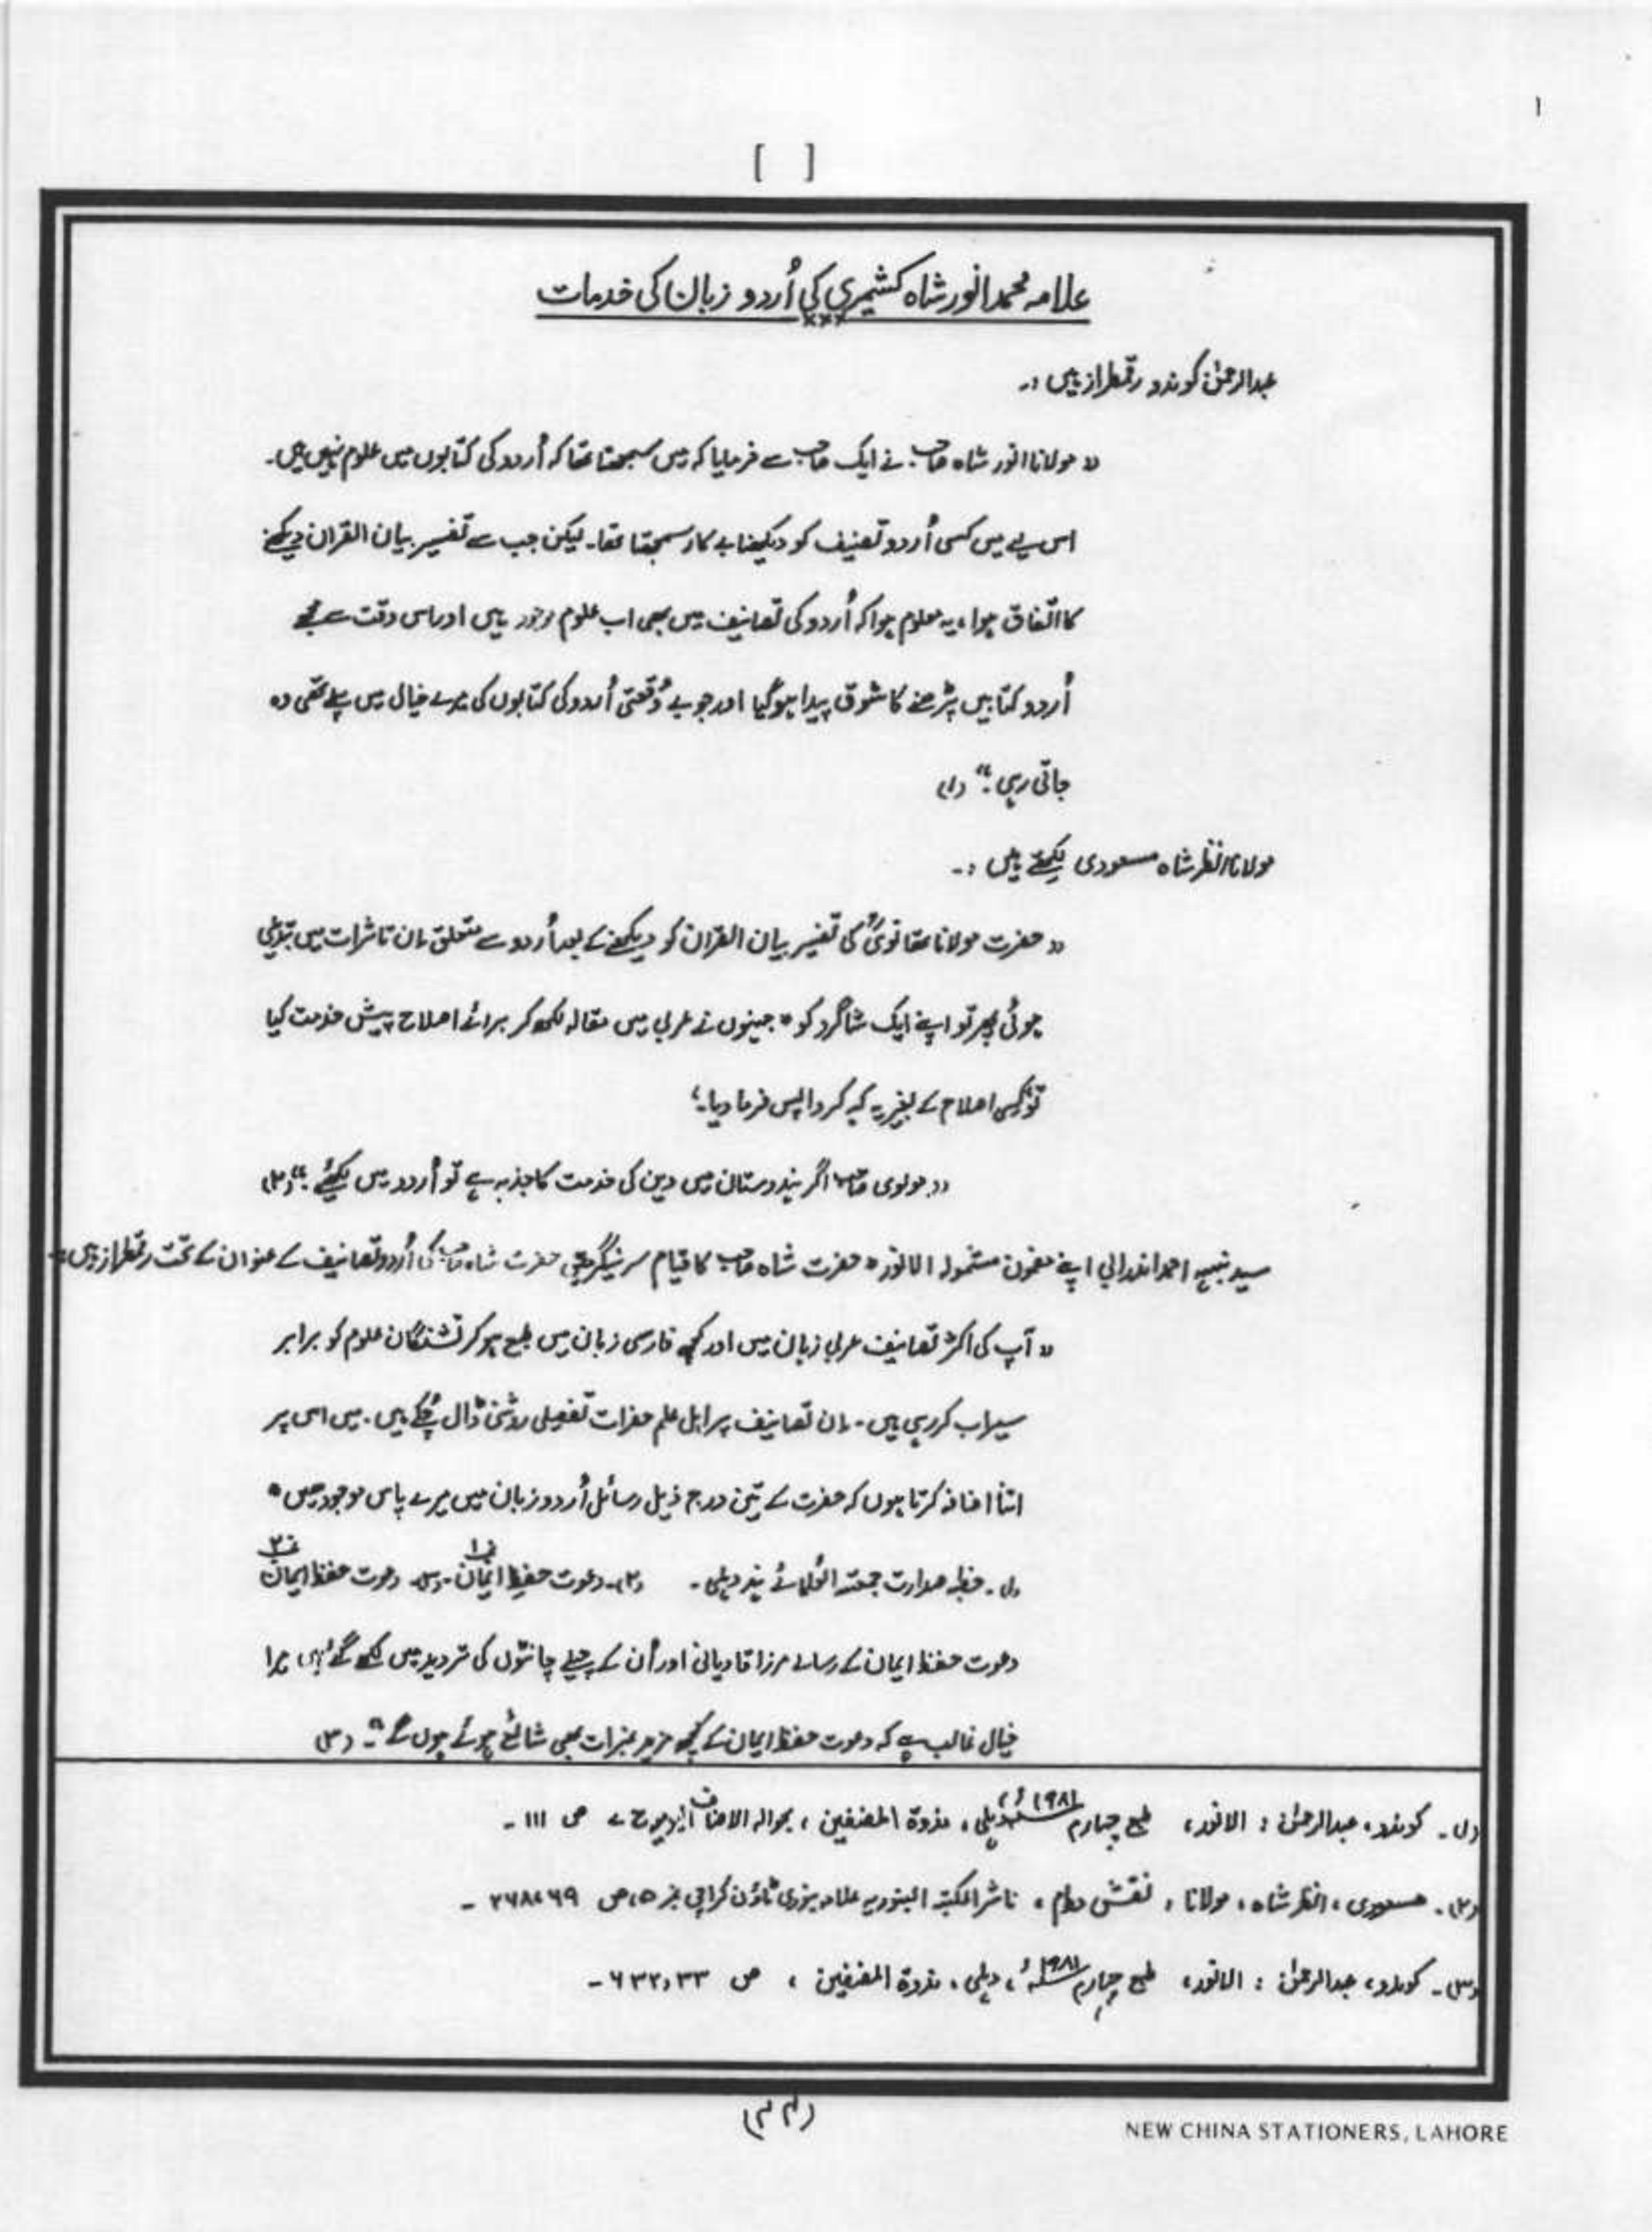 ۱
[ ]
علامہ محمد انور شاہ کشمیری کی اُردو زبان کی خدمات
×××
عبدالرحمٰن کوندو رقمطراز ہیں :۔
"مولانا انور شاہ صاحب نے ایک صاحب سے فرمایا کہ میں سمجھتا تھا کہ اُردو کی کتابوں میں علوم نہیں ہیں۔
اس لیے میں کسی اُردو تصنیف کو دیکھنا بے کار سمجھتا تھا۔ لیکن جب سے تفسیر بیان القرآن دیکھنے
کا اتفاق ہوا، یہ معلوم ہوا کہ اُردو کی تصانیف میں بھی اب علوم موجود ہیں اور اس وقت سے مجھے
اُردو کتابیں پڑھنے کا شوق پیدا ہوگیا اور جو بے وُقعتی اُردو کی کتابوں کی میرے خیال میں پہلے تھی وہ
جاتی رہی۔" (۱)
مولانا انظر شاہ مسعودی لکھتے ہیں :۔
"حضرت مولانا تھانویؒ کی تفسیر بیان القرآن کو دیکھنے کے بعد اُردو سے متعلق اِن تاثرات میں تبدیلی
ہوئی پھر تو اپنے ایک شاگرد کو، جنہوں نے عربی میں مقالہ لکھ کر برائے اصلاح پیش خدمت کیا
تو کسی اصلاح کے بغیر یہ کہہ کر واپس فرما دیا۔"
"مولوی صاحب اگر ہندوستان میں دین کی خدمت کا جذبہ ہے تو اُردو میں لکھئے۔" (۲)
سید احمد اندرابی اپنے مضمون مشمولہ الانور، حضرت شاہ صاحب کا قیام سرینگر حضرت شاہ صاحب کی اُردو تصانیف کے عنوان کے تحت رقمطراز ہیں:
"آپ کی اکثر تصانیف عربی زبان میں اور کچھ فارسی زبان میں طبع ہوکر تشنگان علوم کو برابر
سیراب کررہی ہیں۔ اِن تصانیف پر اہل علم حضرات تفصیلی روشنی ڈال چُکے ہیں۔ میں اس پر
اتنا اضافہ کرتا ہوں کہ حضرت کے تین درج ذیل رسائل اُردو زبان میں میرے پاس موجود ہیں،
(۱)۔ خطبہ صدارت جمعیۃ العُلمائے ہند دہلی۔ (۲)۔ دعوت حفظ ایمان نمبر ۱۔ (۳)۔ دعوت حفظ ایمان نمبر ۲
دعوت حفظ ایمان کے رسالے مرزا قادیانی اور اُن کے چیلے چانٹوں کی تردید میں لکھے گئے ہیں، میرا
خیال غالب ہے کہ دعوت حفظ ایمان کے کچھ مزید نمبرات بھی شائع ہوئے ہوں گے"۔ (۳)
(۱)۔ کوندو، عبدالرحمٰن : الانور، طبع چہارم ۱۹۸۱ء، دہلی، ندوۃ المصنفین، بحوالہ ص ۱۱۱ ۔
(۲)۔ مسعودی، انظر شاہ، مولانا، نقش دوام، ناشر المکتبۃ البنوریہ علامہ بنوری ٹاؤن کراچی نمبر ۵، ص ۶۹،۳۶۸ ۔
(۳)۔ کوندو، عبدالرحمٰن : الانور، طبع چہارم ۱۹۸۱ء، دہلی، ندوۃ المصنفین، ص ۳۳،۶۳۲ ۔
(۴۴)
NEW CHINA STATIONERS, LAHORE